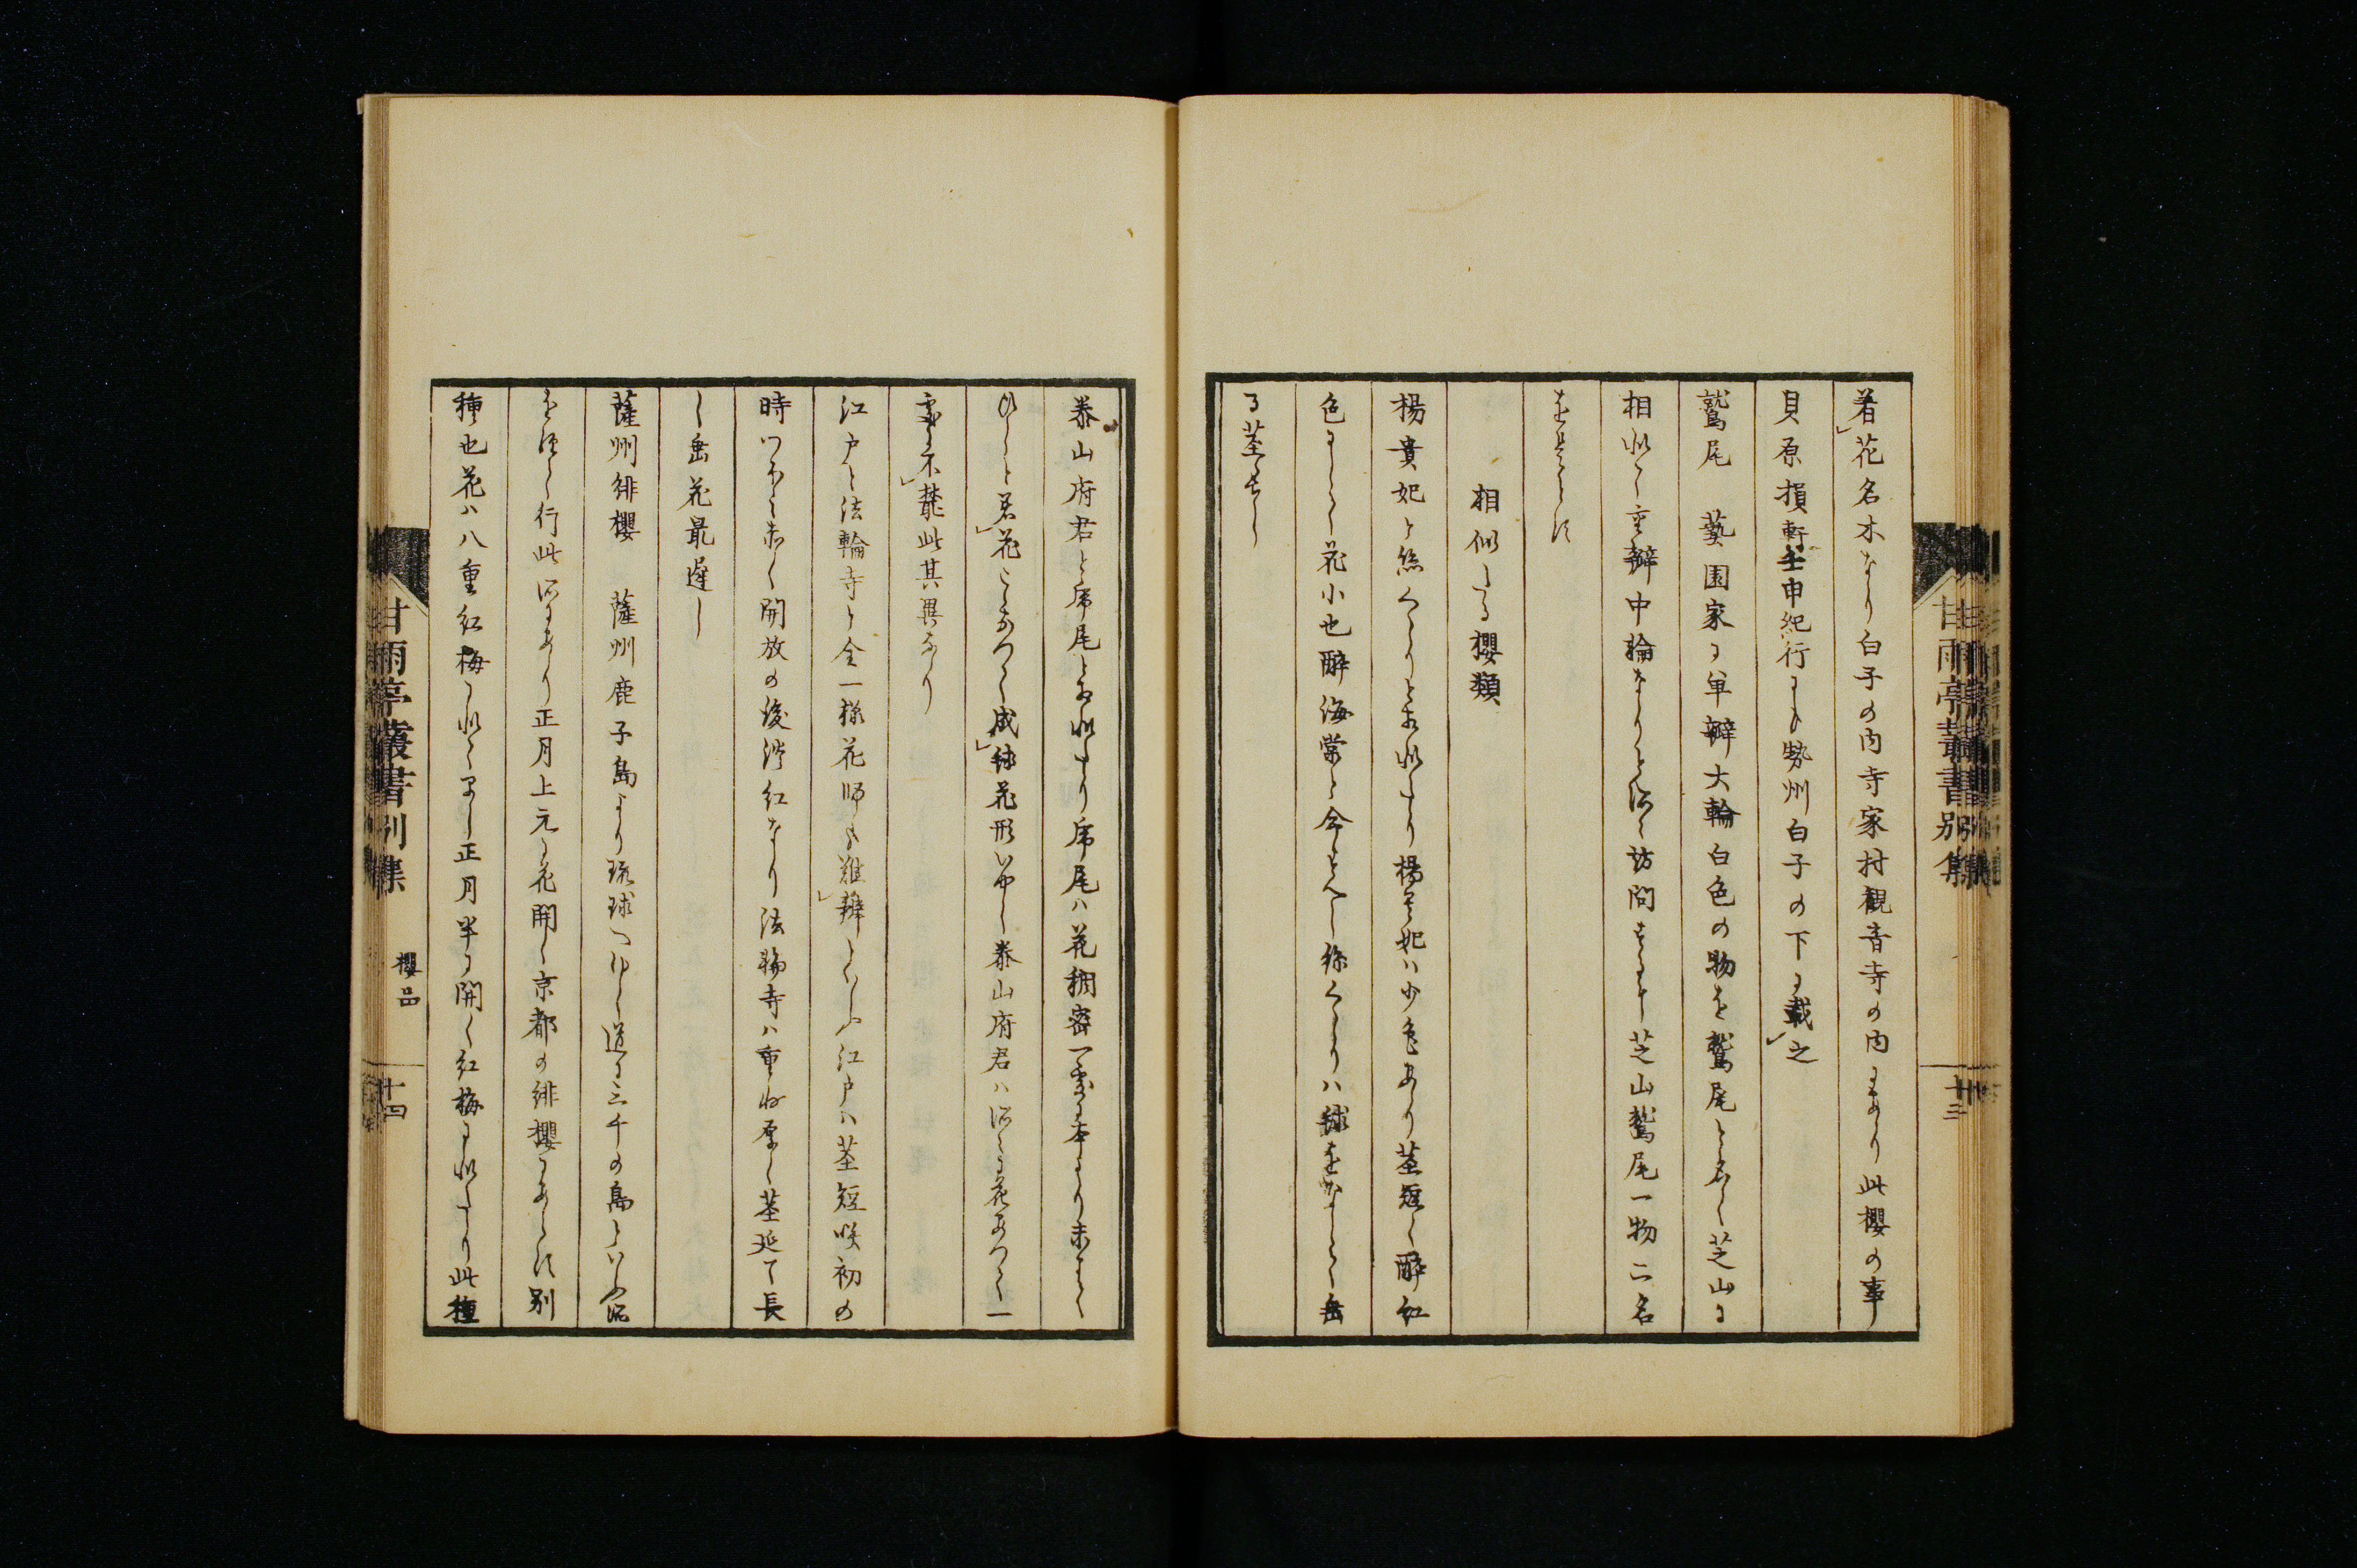 着花名木なり白子の内寺家村観音寺の内にあり此櫻の事
貝原損軒壬申紀行にも勢州白子の下に載之
鷲尾 藝園家に単瓣大輪白色の物を鷲尾と名く芝山に
相似て重瓣中輪なりと
訪問すれは芝山鷲尾一物二名
相似たる櫻類
楊貴妃と糸くゝりと相似たり楊貴妃ハ少色あり茎短く醉紅
色にして花小也醉海棠と今云へし糸くゝりハ毬をなして垂
る茎長し
泰山府君と虎尾と相似たり虎尾ハ花稠密一処
着花 成毬花形 泰山府君ハ 花あつく一
處に不叢此其異なり
江戸と法輪寺と全一様花師も難辨といふ江戸ハ茎短咲初の
時いろこく赤く開放の後淡紅なり法輪寺ハ重ね厚く茎延て長
し垂花最遅し
薩州緋櫻 薩州鹿子島より琉球へ行く道に三千の島といふ所
行此所にあり正月上元に花開く京都の緋櫻にあらす別
種也花ハ八重紅梅に似て 正月半に開く紅梅に似たり此種
甘雨亭叢書別集
十三
甘雨亭叢書別集
櫻品
十四